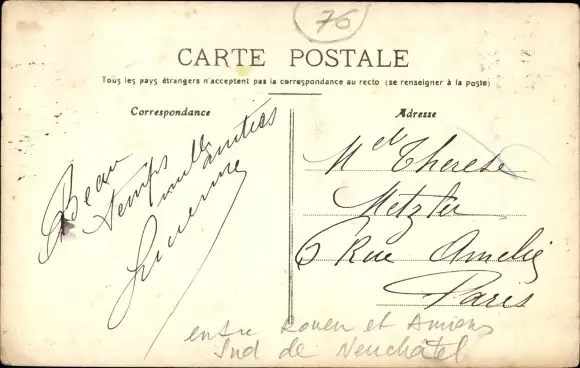 76
CARTE POSTALE
Tous les pays étrangers n'acceptent pas la correspondance au recto (se renseigner à la poste)
Correspondance
Beau
temps
mille amitiés
Adresse
Melle Therese
Metzler
5 Rue Amelie
Paris
entre Rouen et Amiens
Sud de Neuchâtel